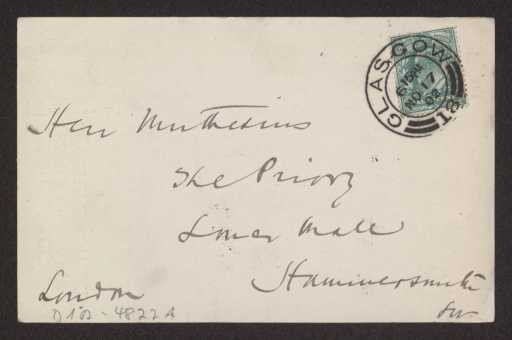 GLASGOW
6 15 PM
NO 17
02
Herr Muthesius
The Priory
Lower Mall
Hammersmith
London